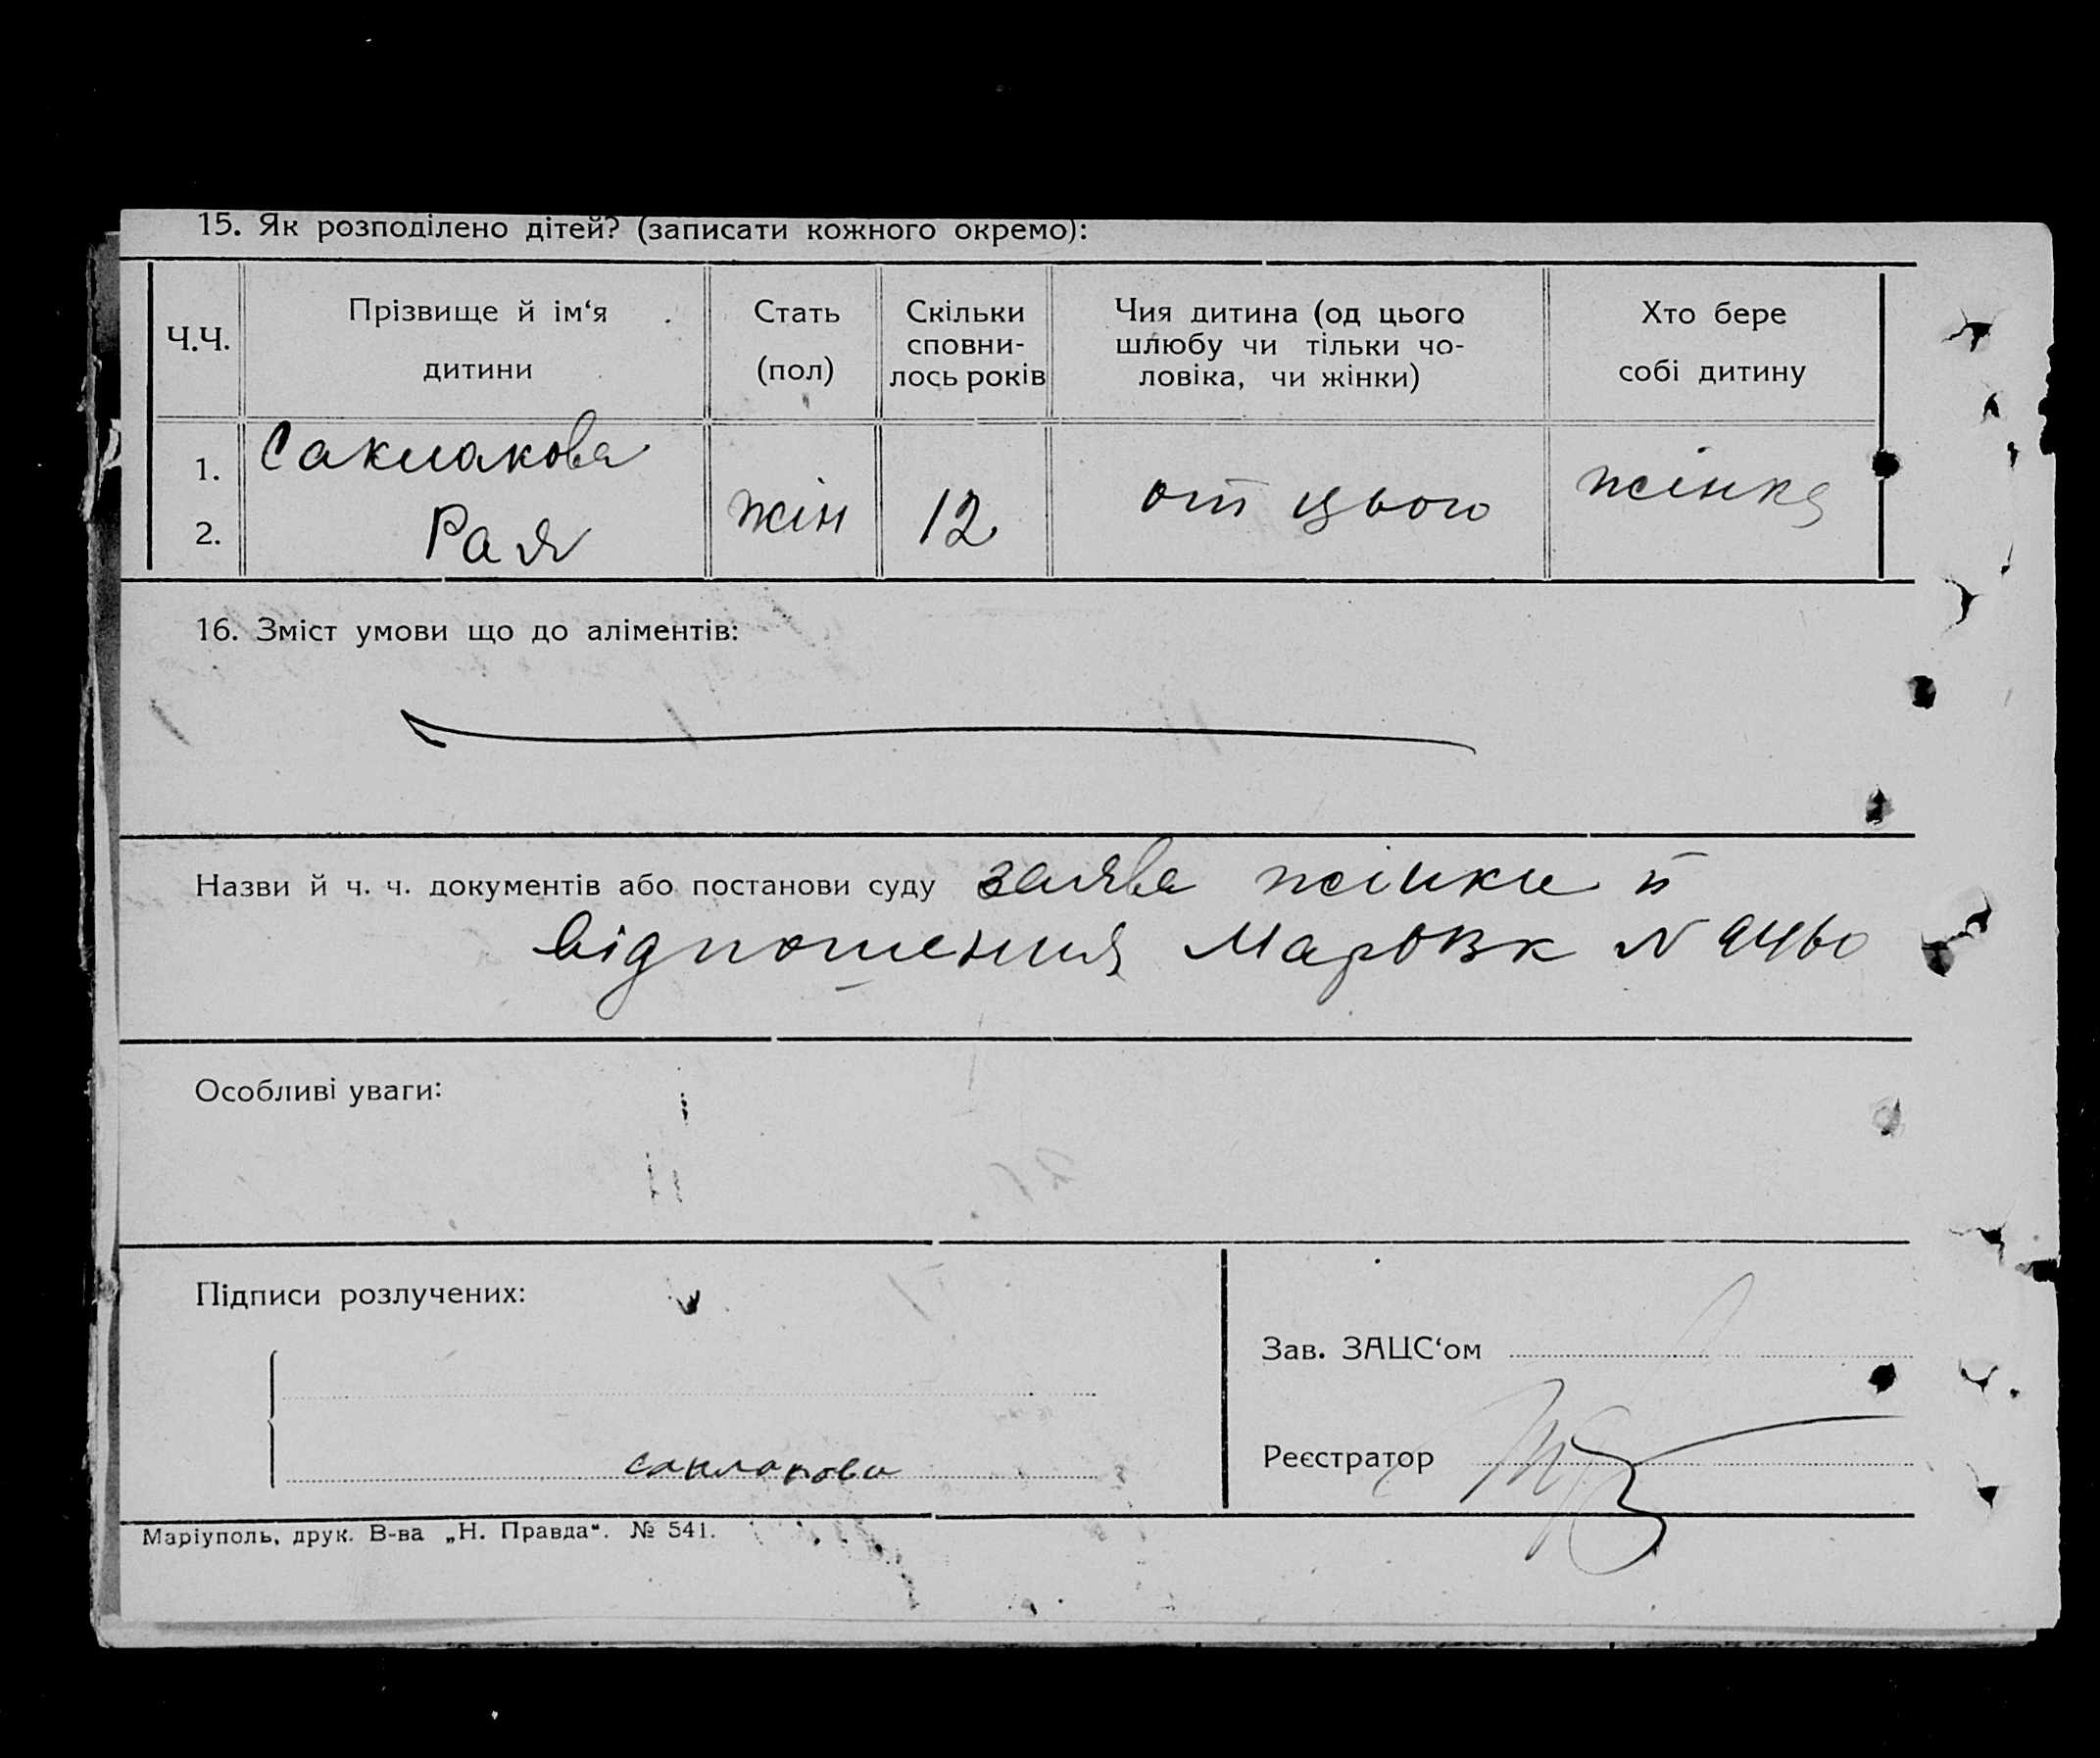 15. Як розподілено дітей? (записати кожного окремо):
Ч.Ч.
Прізвище й ім‘я
дитини
Стать
(пол)
Скільки
сповни-
лось років
Чия дитина (од цього
шлюбу чи тільки чо-
ловіка, чи жінки)
Хто бере
собі дитину
1.
Саклакова
2.
Рая
жін
12
от цього
жінка
16. Зміст умови що до аліментів:
Назви й ч. ч. документів або постанови суду заява жінки й
відношення МарОВК N 9460
Особливі уваги:
Підписи розлучених:
саклакова
Зав. ЗАЦС‘ом
Реєстратор
Маріуполь, друк. В-ва „Н. Правда“. № 541.